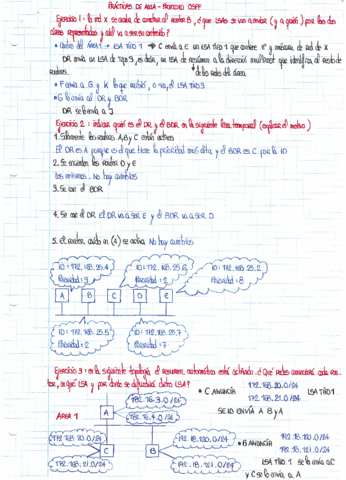 PRÁCTICAS DE AULA - PROTOCOLO OSPF
Ejercicio 1: la red x se acaba de conectar al router B, ¿qué LSAs se van a enviar (y a quién) por las dos
áreas representadas y cuál va a ser su contenido?
• cambio del ÁREA 1 → LSA TIPO 1 → C envía a E un LSA TIPO 1 que contiene nº y máscara de red de X
DR envía un LSA de Tipo 3, es decir, un LSA de resumen a la dirección multicast que identifica al resto de
routers.
de las redes del área.
• F envía a G y K lo que recibió, o sea, el LSA TIPO 3
• G lo envía al DR y BDR
DR se lo envía a J
Ejercicio 2: indicar quién es el DR y el BDR en la siguiente línea temporal (explicar el motivo)
1. Solamente los routers A, B y C están activos
El DR es A porque es el que tiene la prioridad más alta, y el BDR es C por la ID
2. Se encienden los routers D y E
Los mismos. No hay cambios
3. Se cae el BDR
4. Se cae el DR El DR va a ser E y el BDR va a ser D.
5. El router caído en (4) se activa No hay cambios
ID: 172.168.25.4
Prioridad: 9
ID: 172.168.25.6
Prioridad: 2
ID: 192.168.25.2
Prioridad: 8
A B C D E
ID: 172.168.25.5
Prioridad: 2
ID: 172.168.25.7
Prioridad: 7
Ejercicio 3: en la siguiente topología el resumen automático está activado. ¿Qué redes anunciará cada rou-
ter, en qué LSA y por dónde se difundirá dicho LSA?
• C ANUNCIA
172.168.20.0/24
172.168.21.0/24
LSA TIPO 1
SE LO ENVÍA A B y A
192.16.3.0/24
192.16.4.0/24
ÁREA 1
A
172.168.20.0/24
C
172.168.21.0/24
192.16.120.0/24
B
192.16.121.0/24
• B ANUNCIA
192.16.120.0/24
192.16.121.0/24
LSA TIPO 1 se lo envía a C
y C se lo envía a A